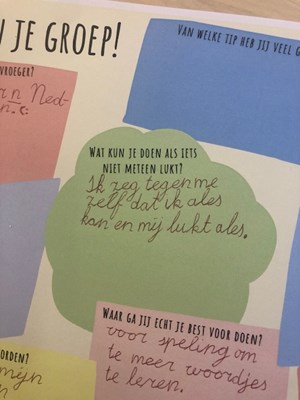 N JE GROEP!
VAN WELKE TIP HEB JIJ VEEL G
VROEGER?
Ned-
WAT KUN JE DOEN ALS IETS
NIET METEEN LUKT?
Ik zeg tegen me
zelf dat ik ales
kan en mij lukt ales.
WAAR GA JIJ ECHT JE BEST VOOR DOEN?
voor speling om
te meer woordjes
te leren.
ORDEN?
mijn